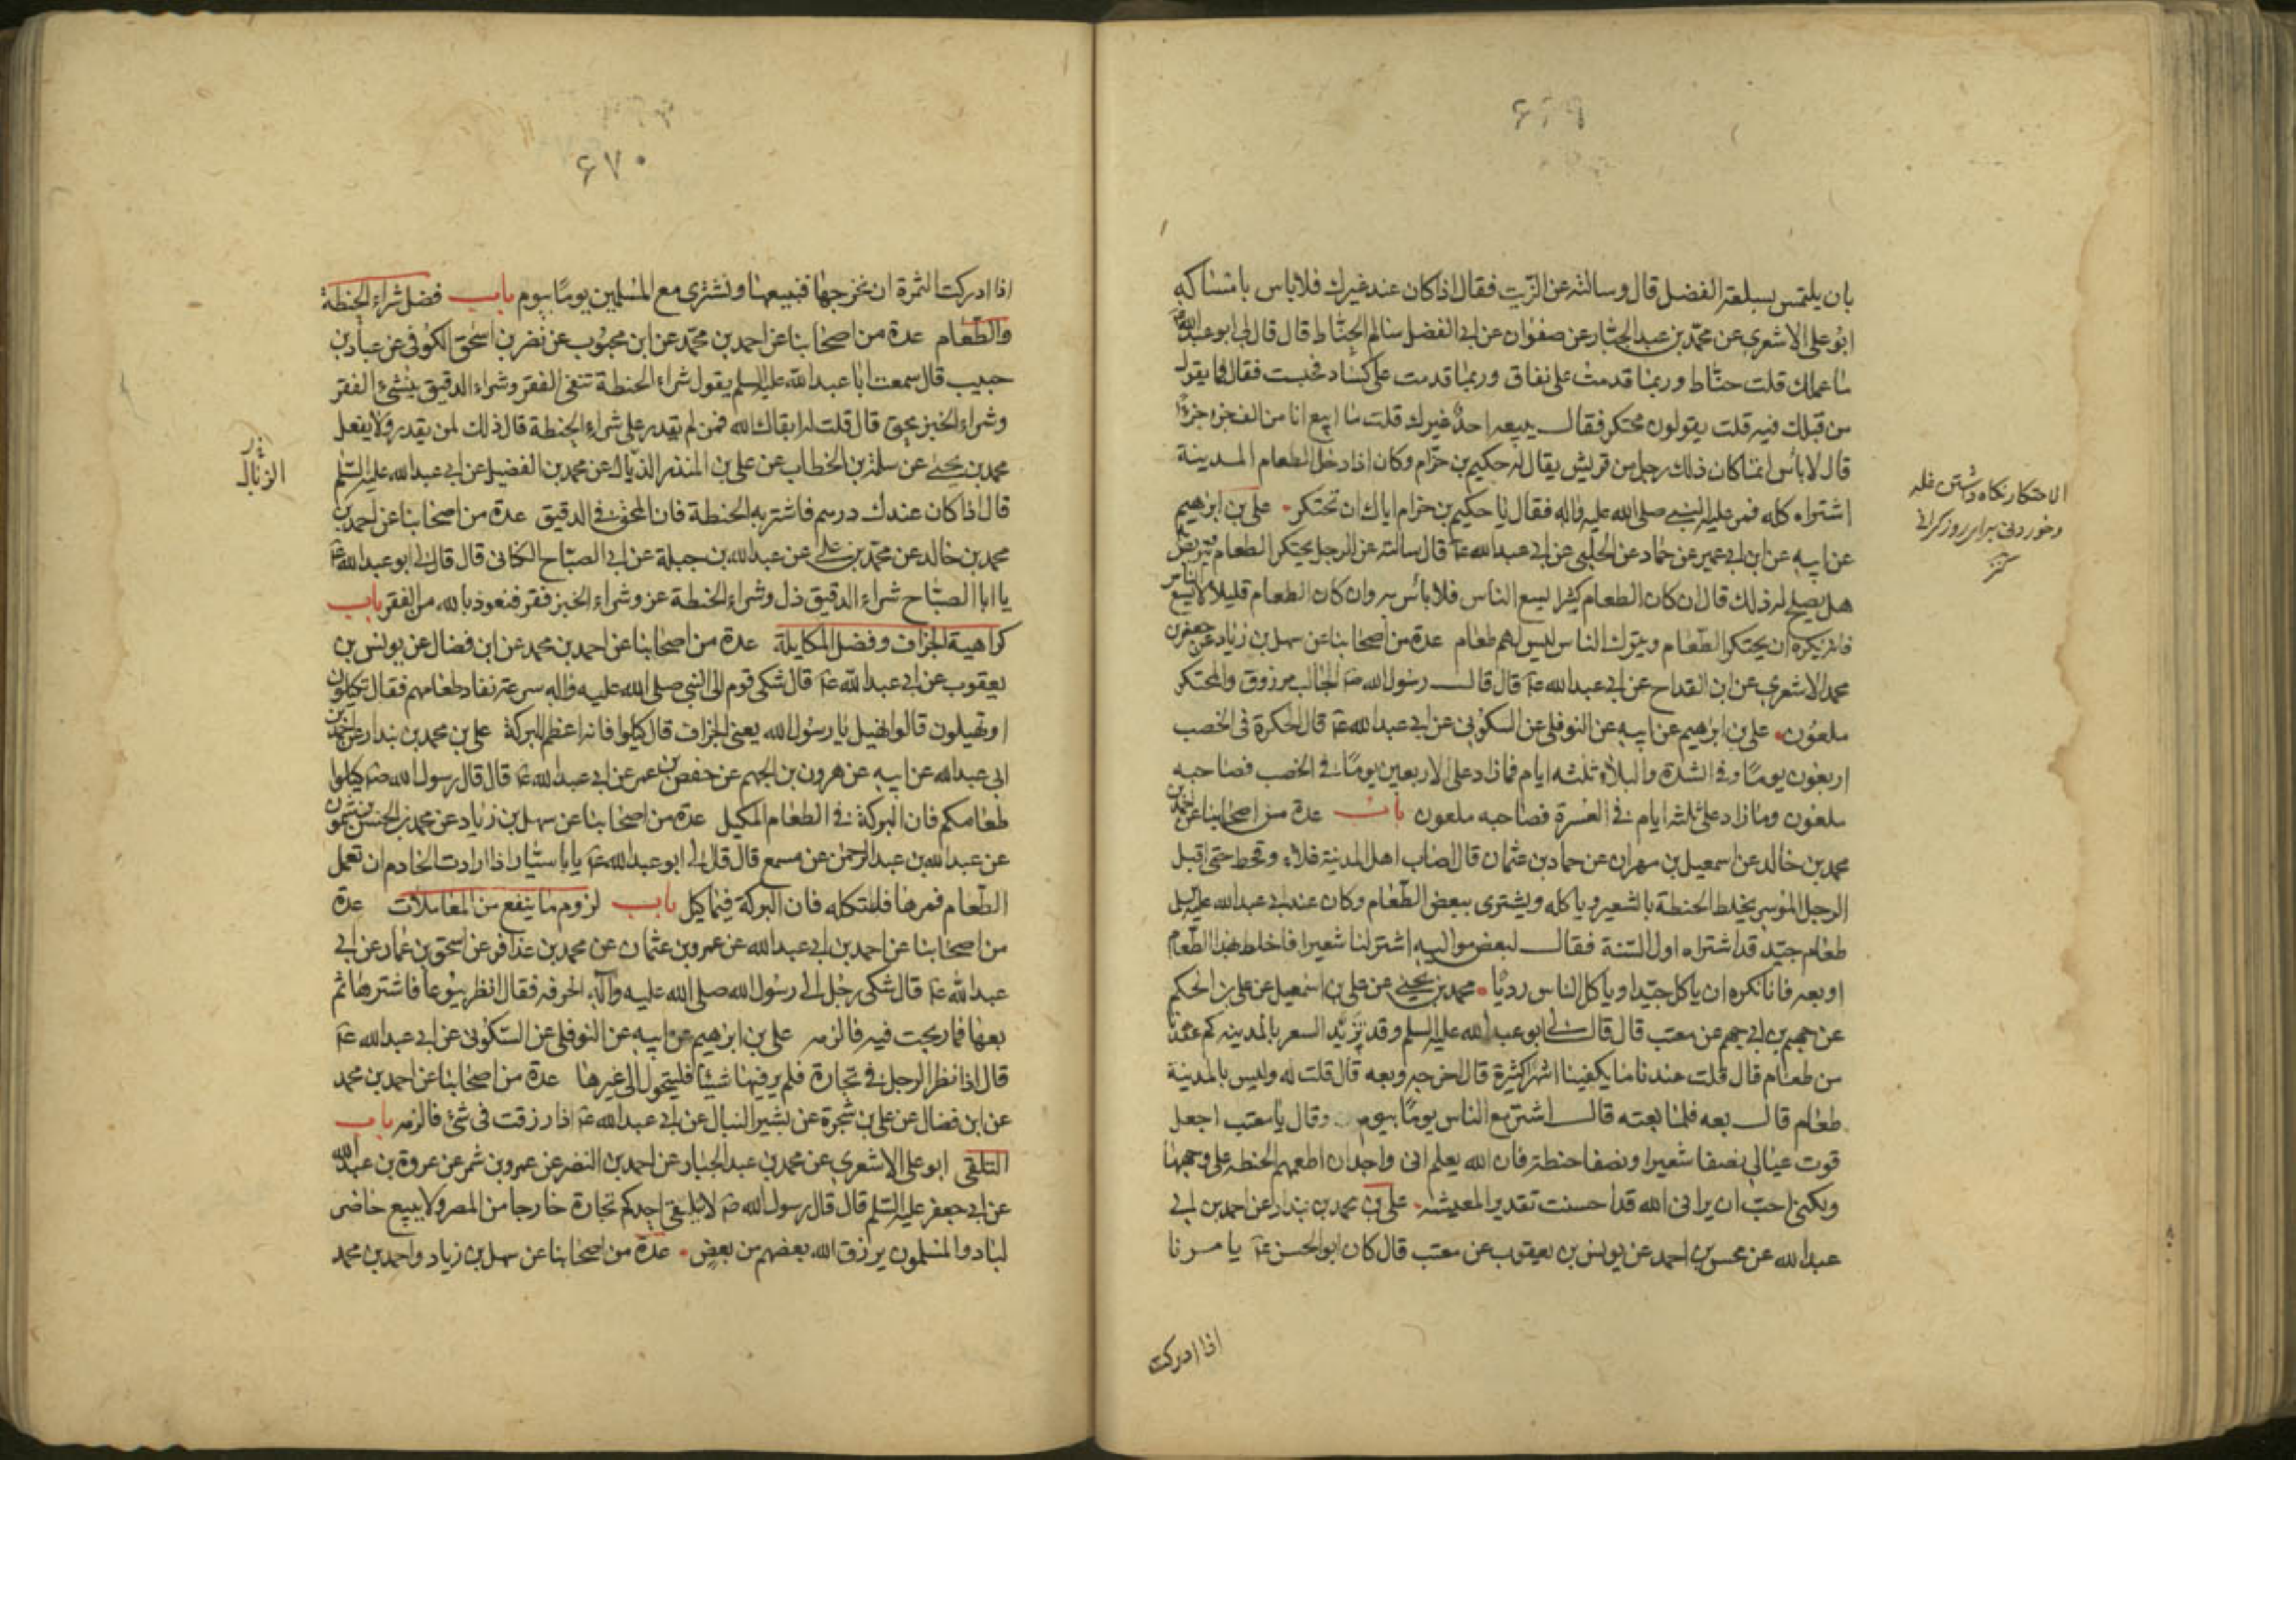 ۶۶۹
بان يلتمس بسلعته الفضل قال وسالته عن الزيت فقال اذا كان عند غيرك فلاباس بامساكه
ابو على الاشعرى عن محمد بن عبد الجبار عن صفوان عن ابى الفضل سالم الحناط قال قال لى ابو عبد الله ع
ما عملك قلت حناط وربما قدمت على نفاق وربما قدمت على كساد فحبست فقال فما يقول
من قبلك فيه قلت يقولون محتكر فقال يبيعه احد غيرك قلت ما ابيع انا من الف جزو جزءًا
قال لا بأس انما كان ذلك رجل من قريش يقال له حكيم بن حزام وكان اذا دخل الطعام المدينة
اشتراه كله فمر عليه النبى صلى الله عليه واله فقال يا حكيم بن حزام اياك ان تحتكر على بن ابرهيم
عن ابيه عن ابن ابى عمير عن حماد عن الحلبى عن ابى عبد الله ع قال سالته عن الرجل يحتكر الطعام يتربص
هل يصلح له ذلك قال ان كان الطعام كثيرا يسع الناس فلا بأس به وان كان الطعام قليلا لا يسع الناس
فانه يكره ان يحتكر الطعام ويترك الناس ليس لهم طعام عدة من اصحابنا عن سهل بن زياد عن جعفر بن
محمد الاشعرى عن ابن القداح عن ابى عبد الله ع قال قال رسول الله ص الجالب مرزوق والمحتكر
ملعون على بن ابرهيم عن ابيه عن النوفلى عن السكونى عن ابى عبد الله ع قال الحكرة فى الخصب
اربعون يومًا وفى الشدة والبلاء ثلثه ايام فمازاد على الاربعين يومًا فى الخصب فصاحبه
ملعون وما زاد على ثلثه ايام فى العسرة فصاحبه ملعون باب عدة من اصحابنا عن احمد بن
محمد بن خالد عن اسمعيل بن مهران عن حماد بن عثمان قال اصاب اهل المدينة غلاء وقحط حتى اقبل
الرجل الموسر يخلط الحنطة بالشعير وياكله ويشترى ببعض الطعام وكان عند ابى عبد الله عليه السلم
طعام جيد قد اشتراه اول السنة فقال لبعض مواليه اشتر لنا شعيرا فاخلط بهذا الطعام
او بعه فانا نكره ان ياكل جيدا وياكل الناس رديًا محمد بن يحيى عن على بن اسمعيل عن على بن الحكم
عن جهم بن ابى جهم عن معتب قال قال لى ابو عبد الله عليه السلم وقد تزيد السعر بالمدينه كم عندنا
من طعام قال قلت عندنا ما يكفينا اشهر كثيرة قال اخرجه وبعه قال قلت له وليس بالمدينة
طعام قال بعه فلما بعته قال اشتر مع الناس يومًا بيوم وقال يا معتب اجعل
قوت عيالى نصفا شعيرا ونصفا حنطة فان الله يعلم انى واجدان اطعمهم الحنطه على وجهها
ولكنى احب ان يرانى الله قد احسنت تقدير المعيشه على بن محمد بن بندار عن احمد بن ابى
عبد الله عن محسن بن احمد عن يونس بن يعقوب عن معتب قال كان ابو الحسن ع يا مرنا
اذا ادركت
الاحتكار نكاه داشتن غله
وخوردنى براى روز كرانى
كنز
۶۷۰
اذا ادركت الثمرة ان نخرجها فنبيعها ونشترى مع المسلمين يومًا بيوم باب فضل شراء الحنطة
والطعام عدة من اصحابنا عن احمد بن محمد عن ابن محبوب عن نضر بن اسحق الكوفى عن عباد بن
حبيب قال سمعت ابا عبد الله عليه السلم يقول شراء الحنطة تنفى الفقر وشراء الدقيق ينشئ الفقر
وشراء الخبز محق قال قلت له ابقاك الله فمن لم يقدر على شراء الحنطة قال ذلك لمن يقدر ولا يفعل
محمد بن يحيى عن سلمة بن الخطاب عن على بن المنذر الذبال عن محمد بن الفضيل عن ابى عبد الله عليه السلم
قال اذا كان عندك درهم فاشتر به الحنطة فان المحق فى الدقيق عدة من اصحابنا عن احمد بن
محمد بن خالد عن محمد بن على عن عبد الله بن جبلة عن ابى الصباح الكنانى قال قال لى ابو عبد الله ع
يا ابا الصباح شراء الدقيق ذل وشراء الحنطة عز وشراء الخبز فقر فنعوذ بالله من الفقر باب
كراهية الجزاف وفضل المكايلة عدة من اصحابنا عن احمد بن محمد عن ابن فضال عن يونس بن
يعقوب عن ابى عبد الله ع قال شكى قوم الى النبى صلى الله عليه واله سرعة نفاد طعامهم فقال تكيلون
او تهيلون قالوا نهيل يا رسول الله يعنى الجزاف قال كيلوا فانه اعظم للبركة على بن محمد بن بندار عن احمد بن
ابى عبد الله عن ابيه عن هرون بن الجهم عن حفص بن عمر عن ابى عبد الله ع قال قال رسول الله ص كيلوا
طعامكم فان البركة فى الطعام المكيل عدة من اصحابنا عن سهل بن زياد عن محمد بن الحسن بن شمون
عن عبد الله بن عبد الرحمن عن مسمع قال قال لى ابو عبد الله ع يابا سيار اذا ارادت الخادم ان تعمل
الطعام فمرها فلتكله فان البركة فيما كيل باب لزوم ما ينفع من المعاملات عدة
من اصحابنا عن احمد بن ابى عبد الله عن عمرو بن عثمان عن محمد بن عذافر عن اسحق بن عمار عن ابى
عبد الله ع قال شكى رجل الى رسول الله صلى الله عليه وآله الحرفه فقال انظر بيوعا فاشترها ثم
بعها فما ربحت فيه فالزمه على بن ابرهيم عن ابيه عن النوفلى عن السكونى عن ابى عبد الله ع
قال اذا نظر الرجل فى تجارة فلم ير فيها شيئا فليتحول الى غيرها عدة من اصحابنا عن احمد بن محمد
عن ابن فضال عن على بن شجرة عن بشير النبال عن ابى عبد الله ع اذا رزقت فى شئ فالزمه باب
التلقى ابو على الاشعرى عن محمد بن عبد الجبار عن احمد بن النضر عن عمرو بن شمر عن عروة بن عبد الله
عن ابى جعفر عليه السلم قال قال رسول الله ص لا يتلقى احدكم تجارة خارجا من المصر ولا يبيع حاضر
لباد والمسلمون يرزق الله بعضهم من بعض عدة من اصحابنا عن سهل بن زياد واحمد بن محمد
الزبال